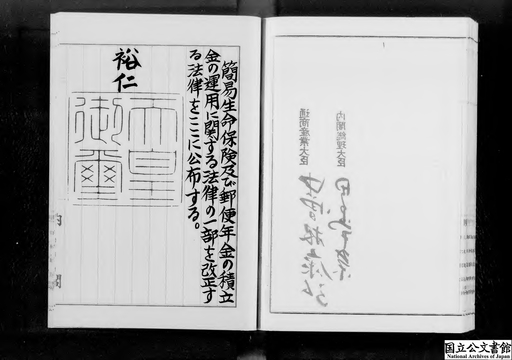 簡易生命保険及び郵便年金の積立
金の運用に関する法律の一部を改正す
る法律をここに公布する。
裕仁
天皇
御璽
内閣総理大臣
通商産業大臣
国立公文書館
National Archives of Japan